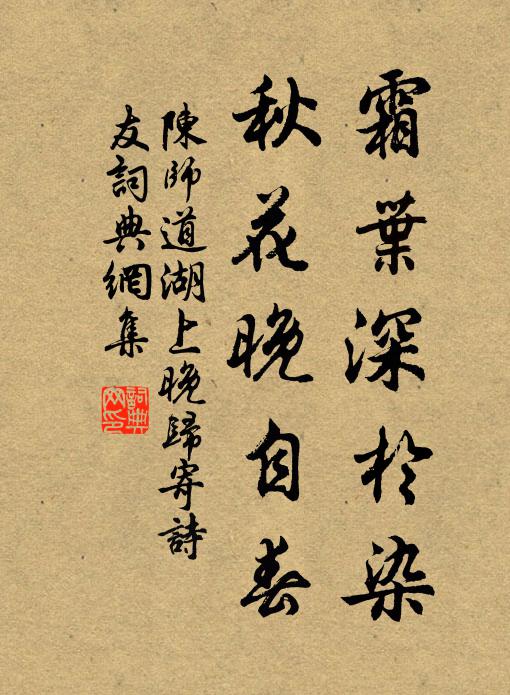 霜葉深於染
秋花晚自春
陳師道湖上晚歸寄詩
友詞典網集
詞典